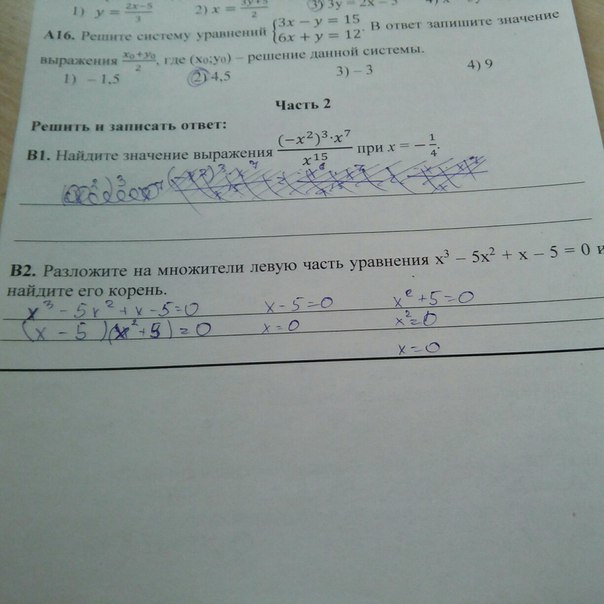 1) y = (2x−5)/3 2) x = (3y+5)/2 3) 3y = 2x −
A16. Решите систему уравнений {3x − y = 15
6x + y = 12. В ответ запишите значение
выражения (x₀+y₀)/2, где (x₀;y₀) – решение данной системы.
1) – 1,5 2) 4,5 3) – 3 4) 9
Часть 2
Решить и записать ответ:
В1. Найдите значение выражения ((−x²)³·x⁷)/x¹⁵ при x = −1/4.
В2. Разложите на множители левую часть уравнения x³ – 5x² + x – 5 = 0 и
найдите его корень.
x³ − 5x² + x − 5 = 0 x − 5 = 0 x² + 5 = 0
(x − 5)(x² + 5) = 0 x = 0 x² = 0
x = 0